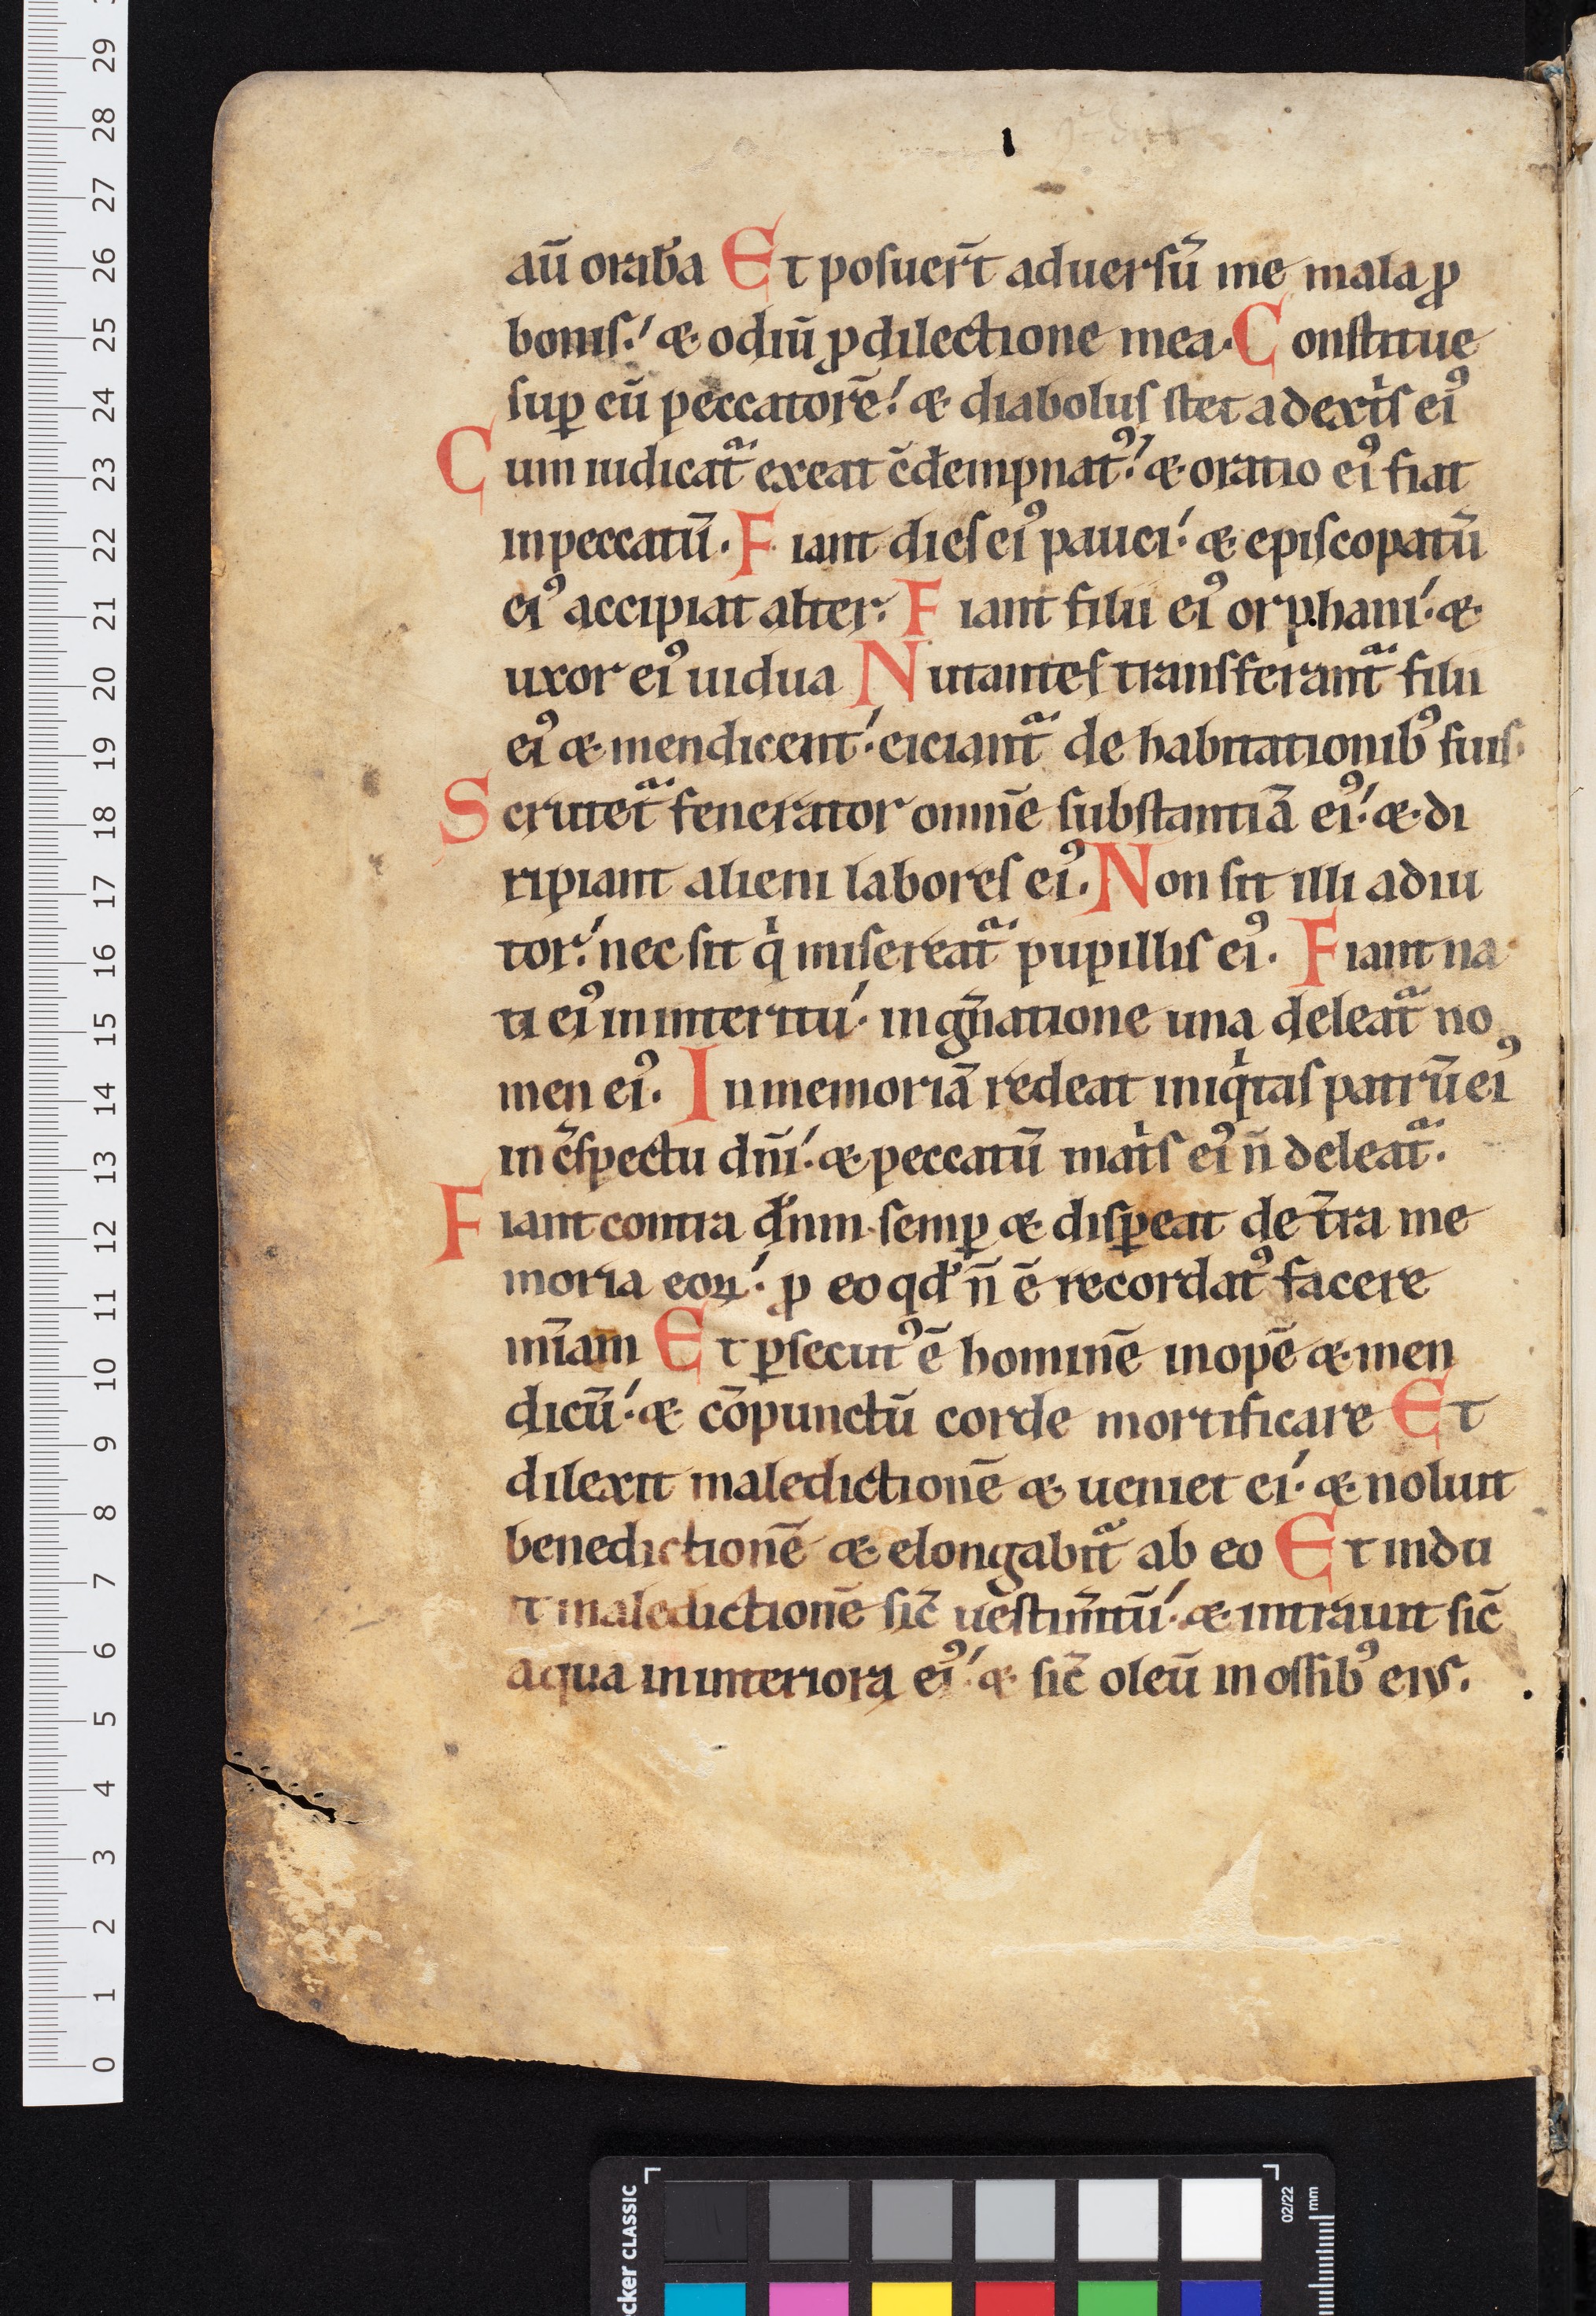 aū orab̄a Et posuer̄t aduersū me mala ꝓ
bonis. &́ odiū ꝓ dilectione mea. Constitue
suꝑ eū peccatorē. & diabolus stet a dextͥs eiꝰ
Cum iudicat̄ exeat c̄dempnatꝰ. & oratio eiꝰ fiat
in peccatū. Fiant dies eiꝰ pauci. & episcopatū
eiꝰ accipiat alter. Fiant filii eiꝰ orphani. &
uxor eiꝰ uidua Nutantes transferant̄ filii
eiꝰ & mendicent. eiciant̄ de habitationibꝰ suis.
Scrutet̄ fenerator omnē substantiā eiꝰ. & di
ripiant alieni labores eiꝰ. Non sit illi adiu
tor. nec sit qͥ misereat̄ pupillis eiꝰ. Fiant na
ti eiꝰ in interitū. in gn̄atione una deleat̄ no
men eiꝰ. In memoriā redeat iniqͥtas patrū eiꝰ
in c̄spectu dn̄i. & peccatū matͥs eiꝰ n̄ deleat̄.
Fiant contra dn̄m semꝑ & disꝑeat de t̄ra me
moria eoꝝ. ꝓ eo qd̄ n̄ ē recordatꝰ facere
mīam Et ꝑsecutꝰ ē hominē inopē & men
dicū. & cōpunctū corde mortificare Et
dilexit maledictionē & ueniet ei. & noluit
benedictionē & elongabit̄ ab eo Et indu
it maledictionē sic̄ uestim̄tū. & intrauit sic̄
aqua in interiora eiꝰ. & sic̄ oleū in ossibꝰ eius.
29
28
27
26
25
24
23
22
21
20
19
18
17
16
15
14
13
12
11
10
9
8
7
6
5
4
3
2
1
0
cker CLASSIC
02/22
mm